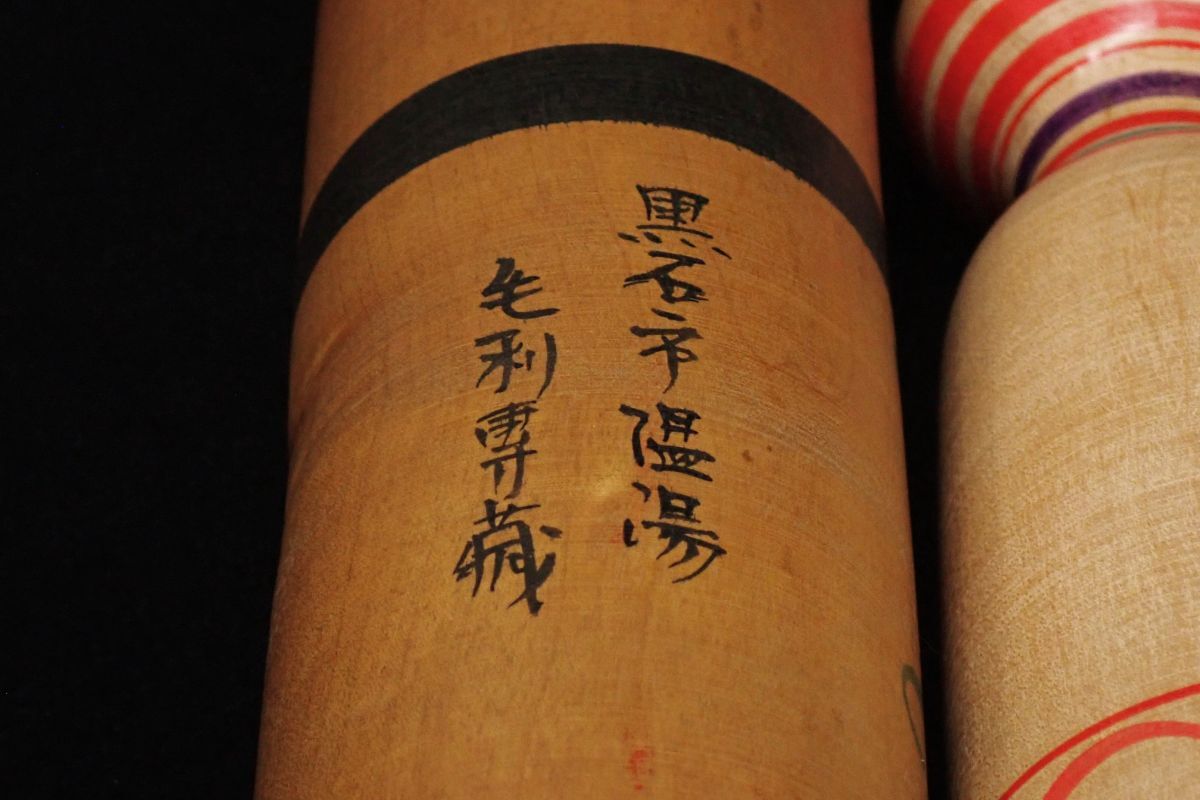 黒石市温湯
毛利専蔵